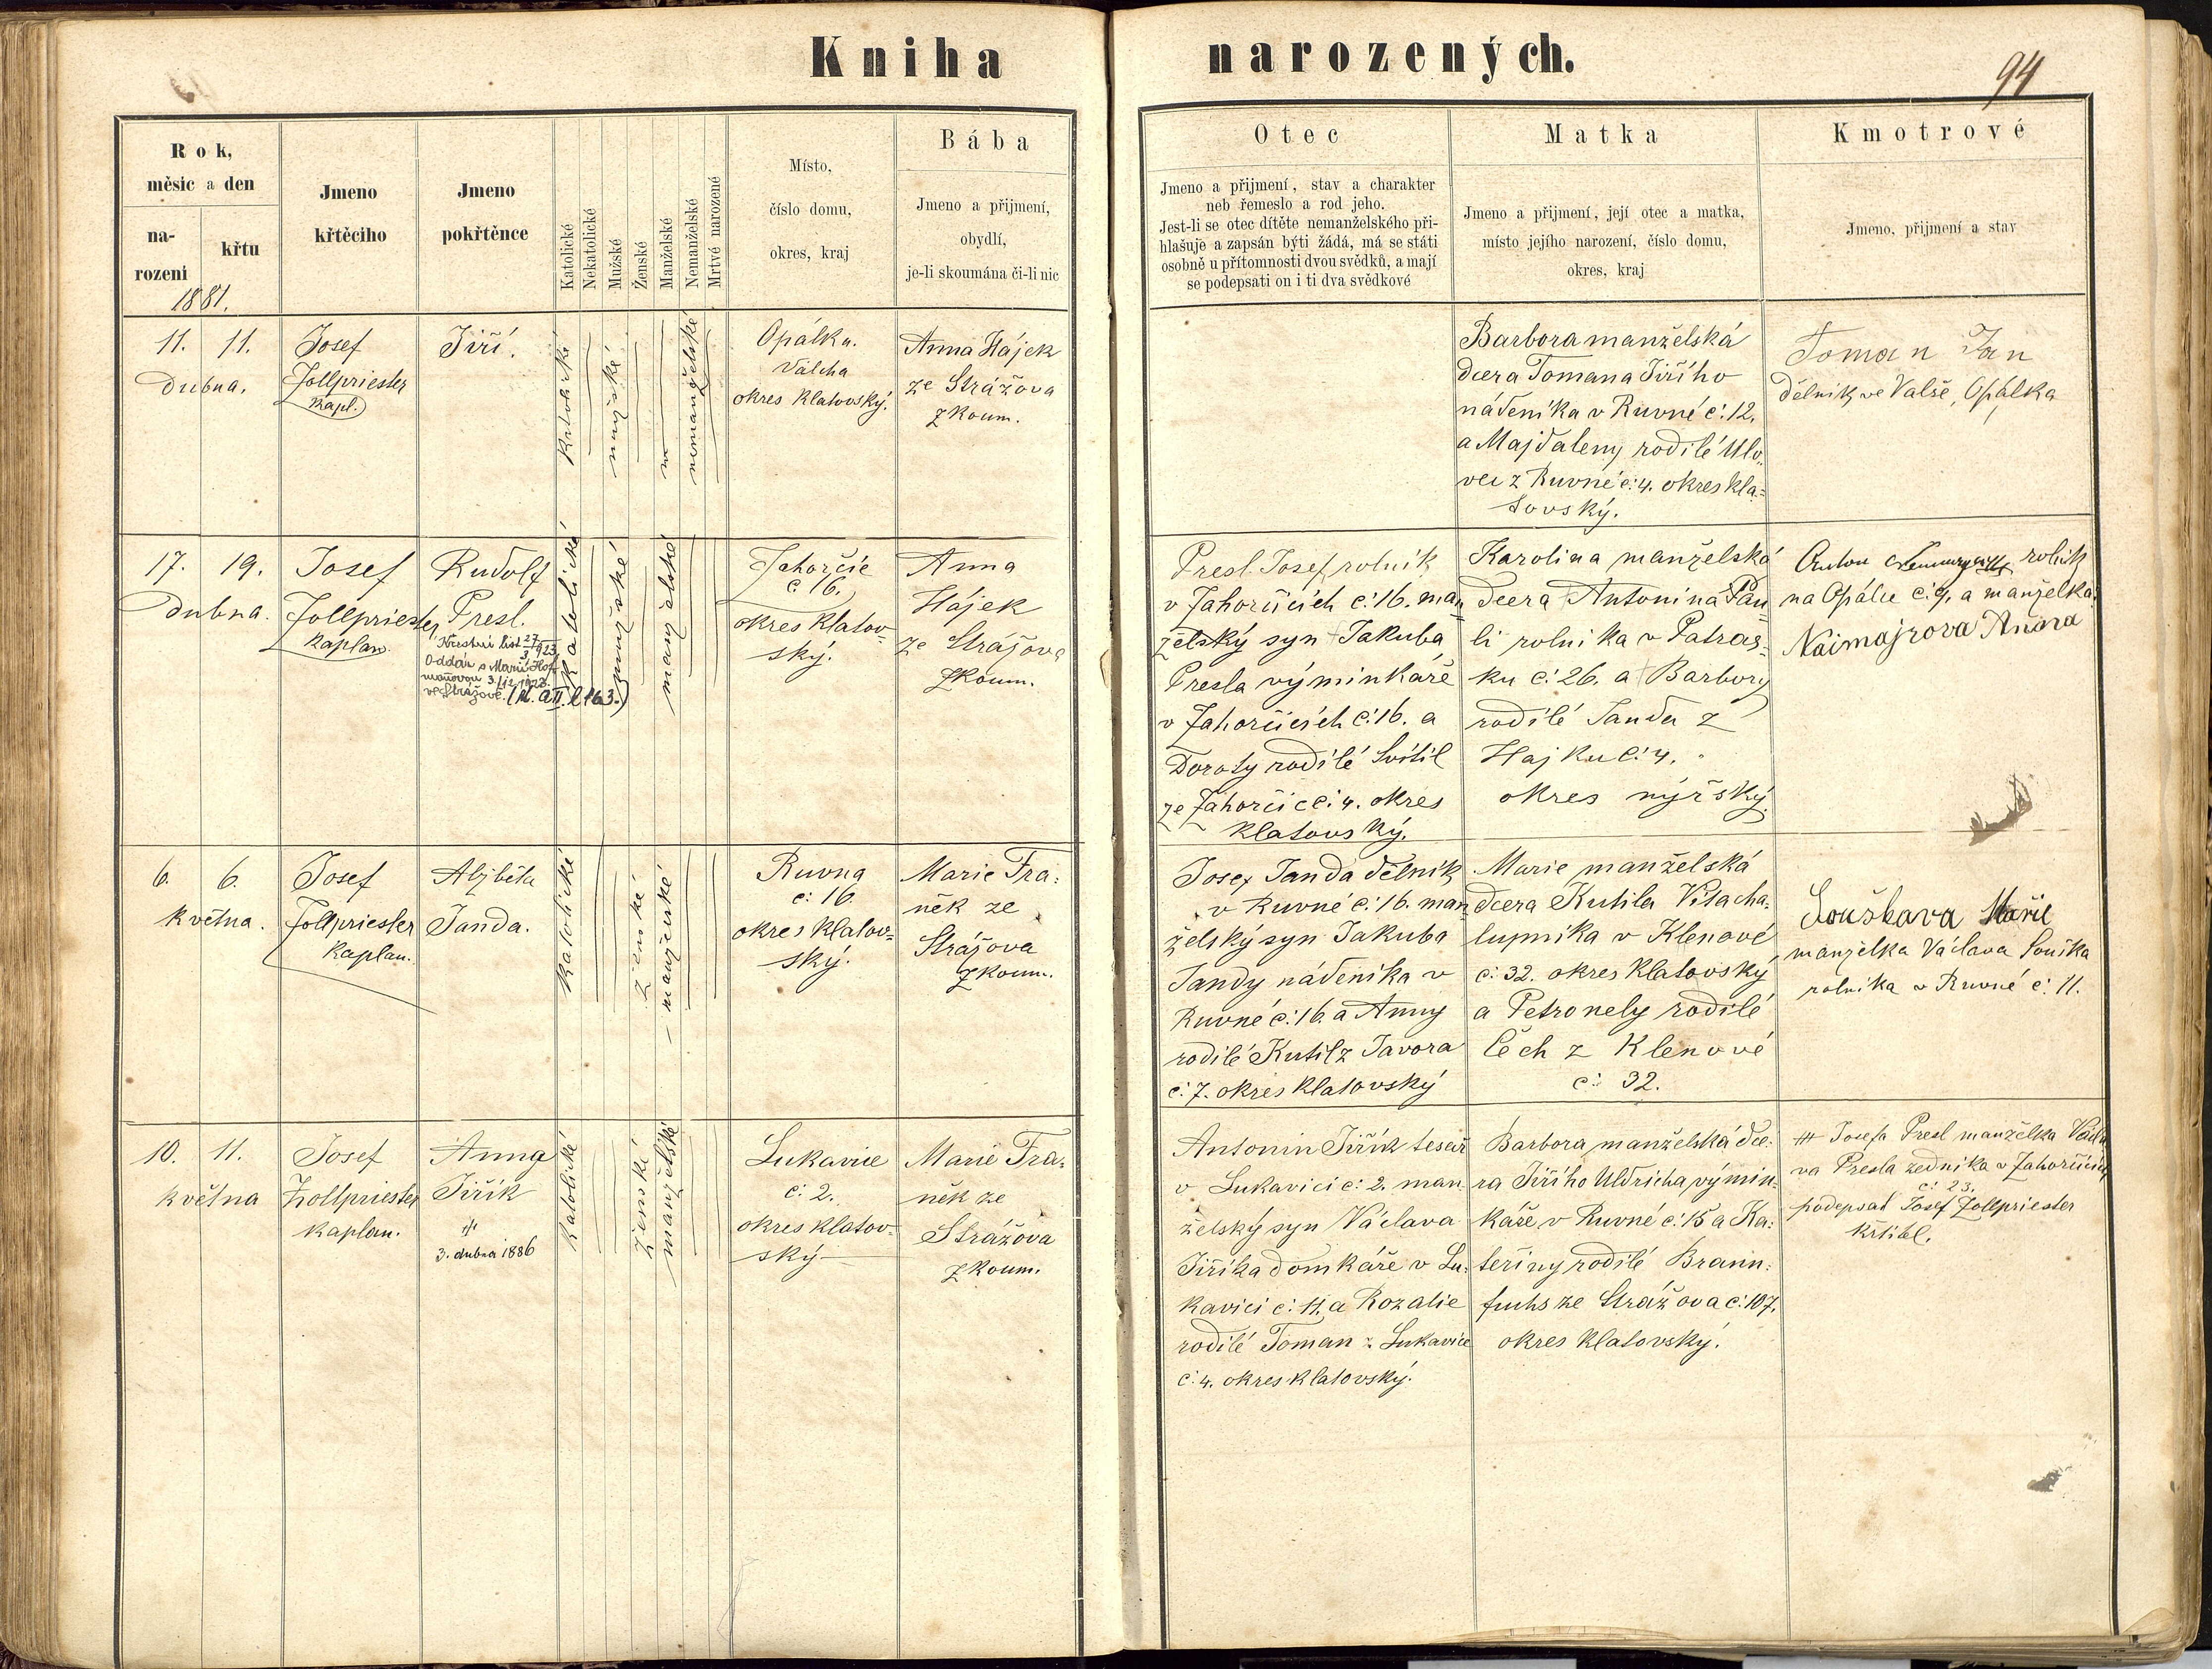 Kniha narozených.
94
Rok,
měsic a den
na-
rozeni
křtu
1881.
Jmeno
křtěciho
Jmeno
pokřtěnce
Katolické
Nekatolické
Mužské
Ženské
Manželské
Nemanželské
Mrtvé narozené
Místo,
číslo domu,
okres, kraj
Bába
Jmeno a přijmení,
obydlí,
je-li skoumána či-li nic
Otec
Jmeno a přijmení, stav a charakter
neb řemeslo a rod jeho.
Jest-li se otec dítěte nemanželského při-
hlašuje a zapsán býti žádá, má se státi
osobně u přítomnosti dvou svědků, a mají
se podepsati on i ti dva svědkové
Matka
Jmeno a přijmení, její otec a matka,
místo jejího narození, číslo domu,
okres, kraj
Kmotrové
Jmeno, přijmení a stav
11. 11.
dubna.
Josef
Zollpriester
kapl.
Jiří.
katolické
mužské
nemanželské
Opálka.
Válcha
okres klatovský.
Anna Hájek
ze Strážova
zkoum.
Barbora manželská
dcera Tomana Jiřího
nádeníka v Ruvné č: 12.
a Majdaleny rodilé Ulo-
vec z Ruvné č: 4. okres kla-
tovský.
Toman Jan
dělník ve Valše, Opálka
17. 19.
dubna.
Josef
Zollpriester
kaplan.
Rudolf
Presl.
Křestní list 27/3 1923
Oddán s Marií Hof-
manovou 3./12. 1923.
ve Strážově.
katolické
mužské
manželské
Zahorčic
č 16.
okres klatov-
ský.
Anna
Hájek
ze Strážova
zkoum.
Presl Josef, rolník
v Zahorčicích č: 16. man-
želský syn Jakuba
Presla výminkáře
v Zahorčicích č: 16. a
Doroty rodilé Svítil
ze Zahorčic č: 4. okres
klatovský.
Karolina manželská
dcera Antonina Pau-
li rolnika v Patras-
ku č: 26. a Barbory
rodilé Janda z
Hajku č: 4.
okres nýrský.
Anton rolník
na Opálce č: 9. a manželka
Naimajrova Anna
6. 6.
května.
Josef
Zollpriester
kaplan.
Alžběta
Janda.
katolické
ženské
manželské
Ruvna
č: 16
okres klatov-
ský.
Marie Fra-
něk ze
Strážova
zkoum.
Josef Janda dělník
v Ruvné č: 16. man-
želský syn Jakuba
Jandy nádenika v
Ruvné č: 16. a Anny
rodilé Kutil z Javora
č: 7. okres klatovský
Marie manželská
dcera Kutila Víta cha-
lupnika v Klenové
č: 32. okres klatovský
a Petronely rodilé
Čech z Klenové
č: 32.
Součkava Marie
manželka Václava Součka
rolnika v Ruvné č: 11.
10. 11.
května
Josef
Zollpriester
kaplan.
Anna
Jiřík
3. dubna 1886
katolické
ženské
manželské
Lukavice
č: 2.
okres klatov-
ský
Marie Fra-
něk ze
Strážova
zkoum.
Antonin Jiřík tesař
v Lukavici č: 2. man-
želský syn Václava
Jiříka domkáře v Lu-
kavici č: 11. a Rozalie
rodilé Toman z Lukavice
č: 4. okres klatovský.
Barbora manželská dce-
ra Jiřího Uldricha výmin-
káře v Ruvné č: 15 a Ka-
teřiny rodilé Braun-
fuchs ze Strážova č: 107.
okres klatovský.
+++ Josefa Presl manželka Václa-
va Presla zedníka v Zahorčicích
č: 23.
podepsal Josef Zollpriester
křtitel.